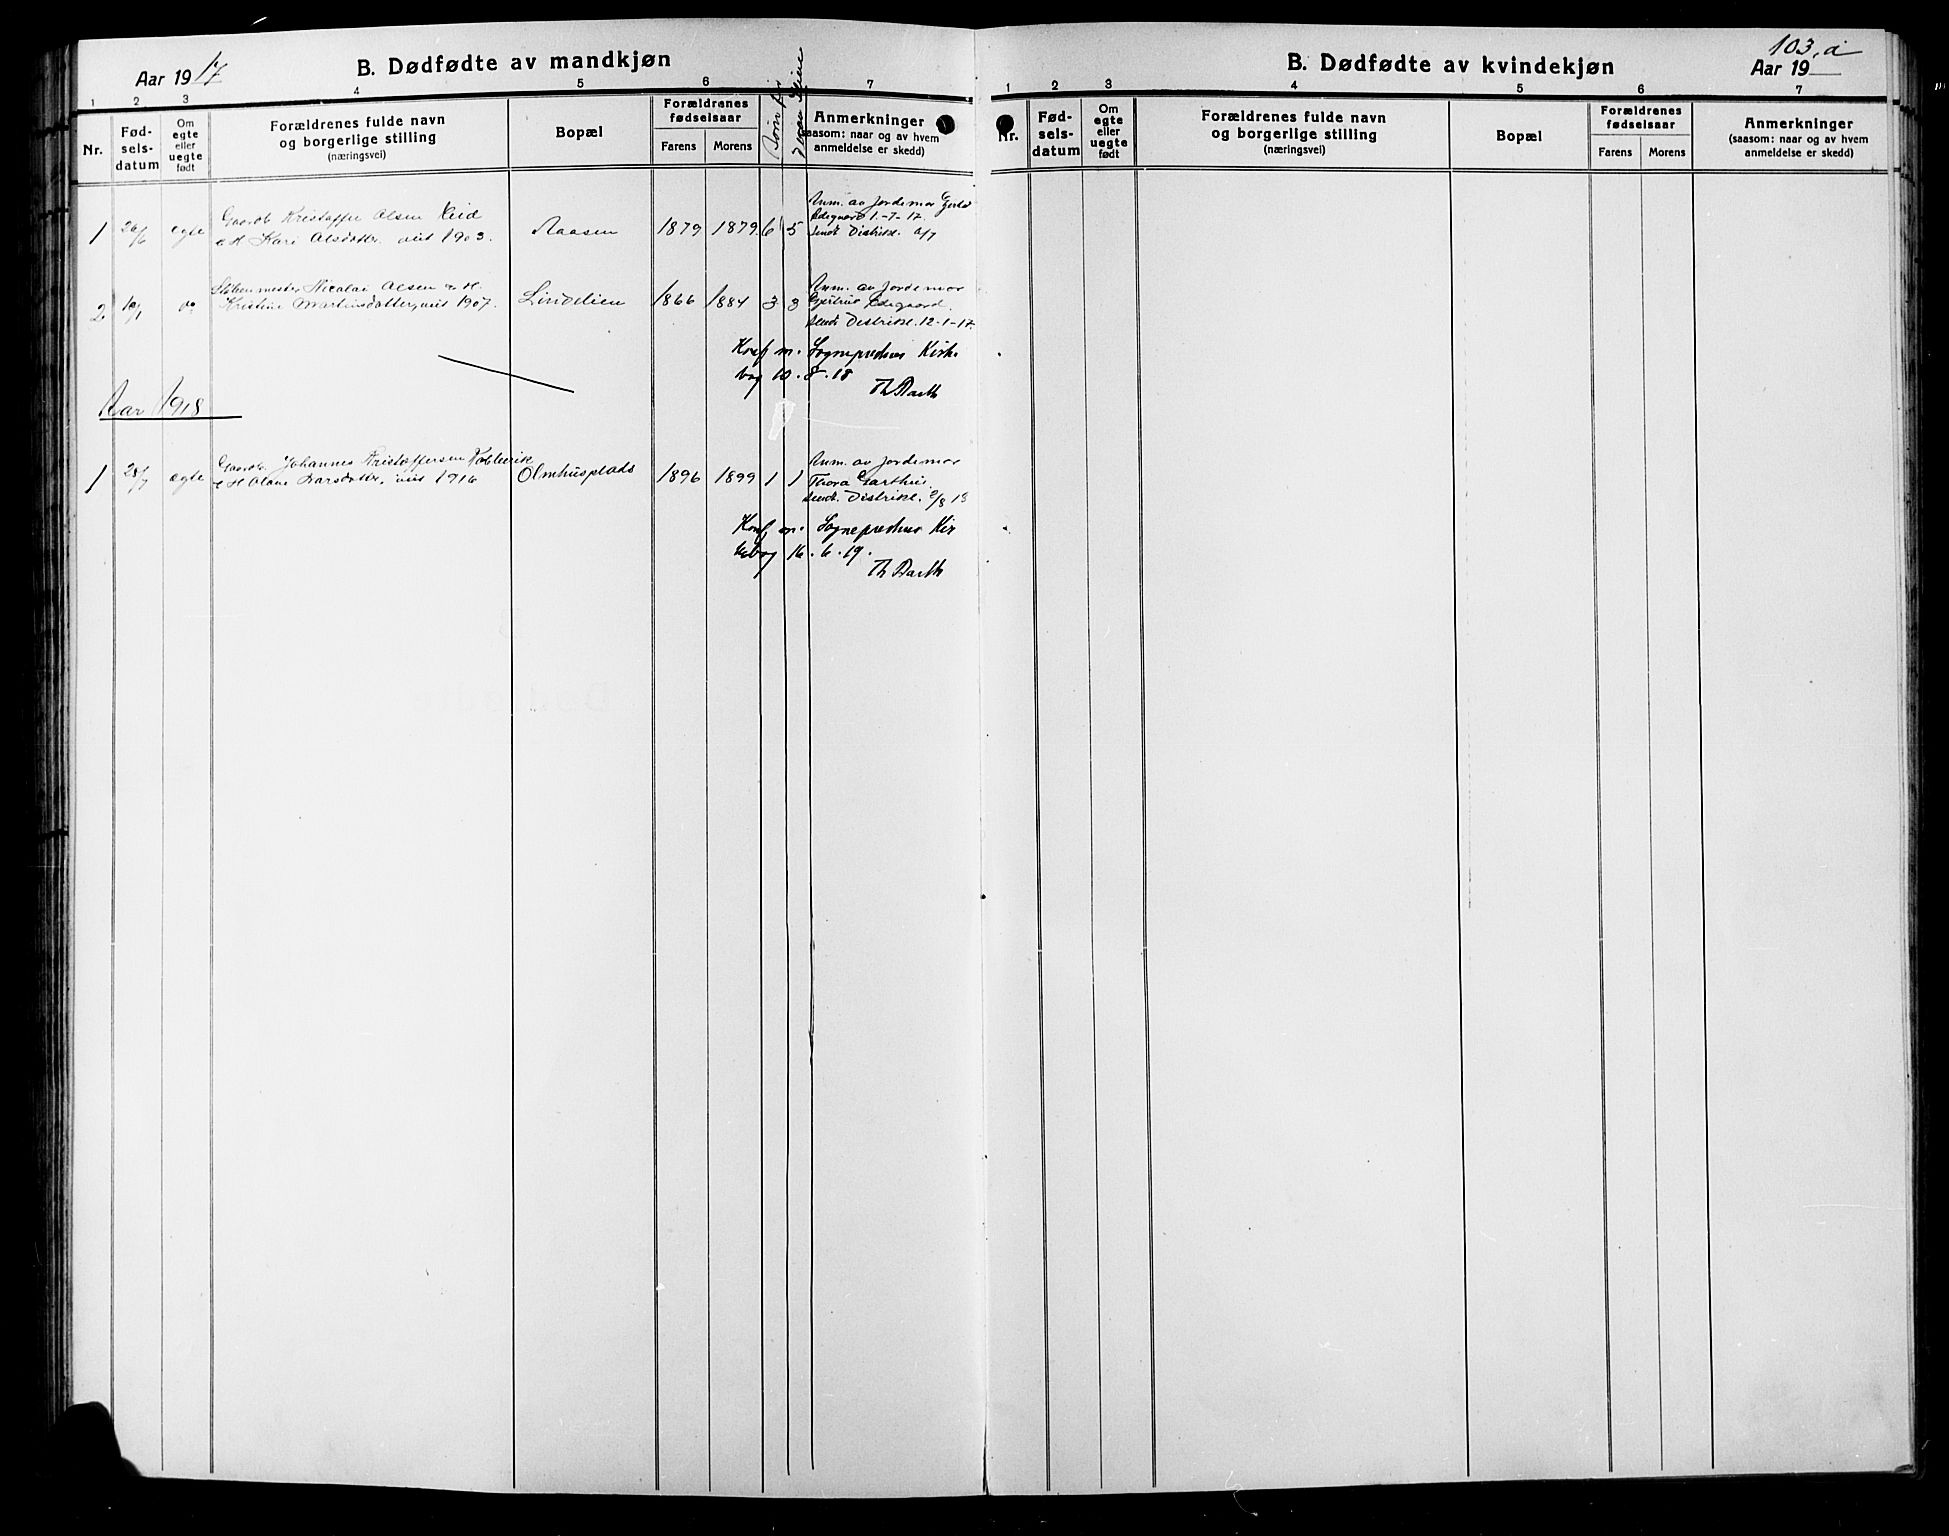 Aar 1917
B. Dødfødte av mandkjøn
1 2 3 4 5 6 7
Nr.
Fød-
sels-
datum
Om
egte
eller
uegte
født
Forældrenes fulde navn
og borgerlige stilling
(næringsvei)
Bopæl
Forældrenes
fødselsaar
Farens Morens
Børn før
Anmerkninger
(saasom: naar og av hvem
anmeldelse er skedd)
1 26/6 egte Gaardb. Kristoffer Olsen
e H Kari Olsdatter. viet 1903.
Aaasen 1879 1879 6 5
Anm. av Jordemor
Ødegaard 1-7-17.
sendt Distrikl.
2 10/1 do Nicolai Olsen o. H.
Kristine Martinsdatter, viet 1907.
Lindelien 1866 1884 3 3
Anm. av Jordemor
Gjertrud Ødegaard
sendt Distrikl. 12-1-17.
Konf m. Sogneprestens Kirke
bog 10.8.18
Th Barth
Aar 1918
1 28/7 egte Gaardb. Johannes Kristoffersen
e H Olava Larsdatter, viet 1916
Olmhusplads 1896 1899 1 1
Anm. av Jordemor
Thora Garthus.
sendt Distrikl. 2/8 18
Konf m. Sogneprestens Kir
kebog 16.6.19.
Th Barth
103, a
B. Dødfødte av kvindekjøn
Aar 19
1 2 3 4 5 6 7
Nr.
Fød-
sels-
datum
Om
egte
eller
uegte
født
Forældrenes fulde navn
og borgerlige stilling
(næringsvei)
Bopæl
Forældrenes
fødselsaar
Farens Morens
Anmerkninger
(saasom: naar og av hvem
anmeldelse er skedd)